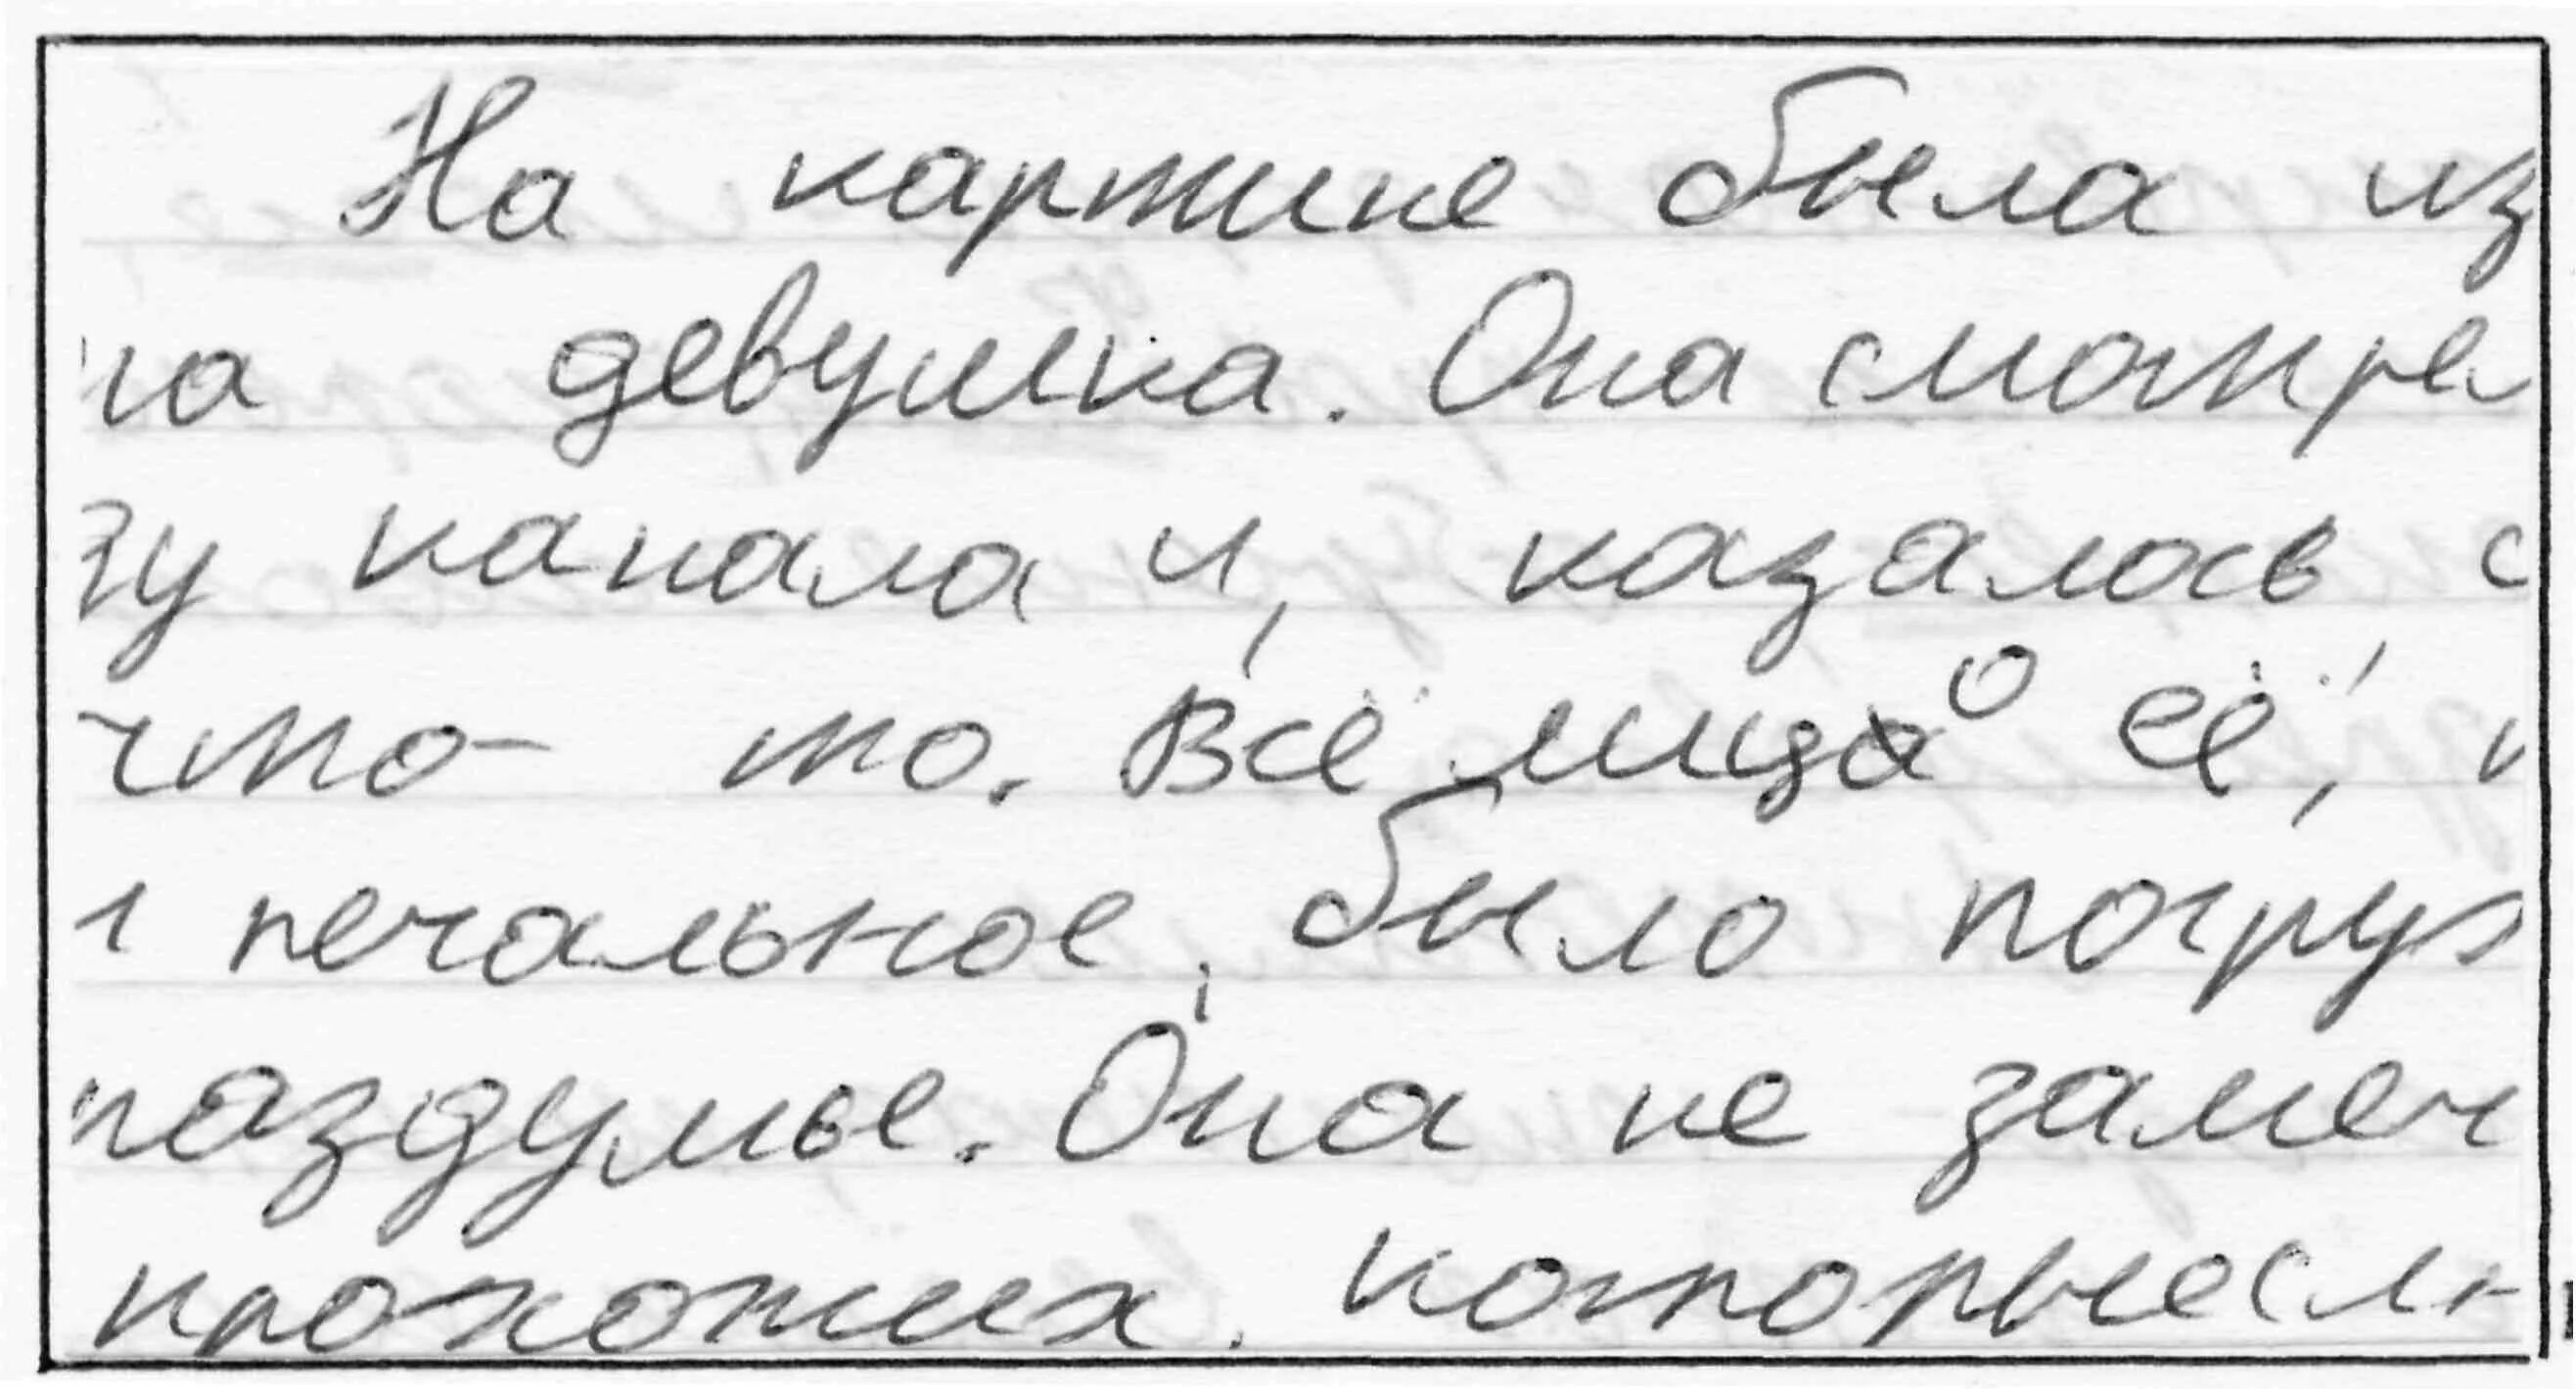 На картине была из
на девушка. Она смотре
зу канала и, казалось, с
что- то. Всё лицо её, и
и печальное, было погруж
раздумье. Она не замеч
прохожих, которые см